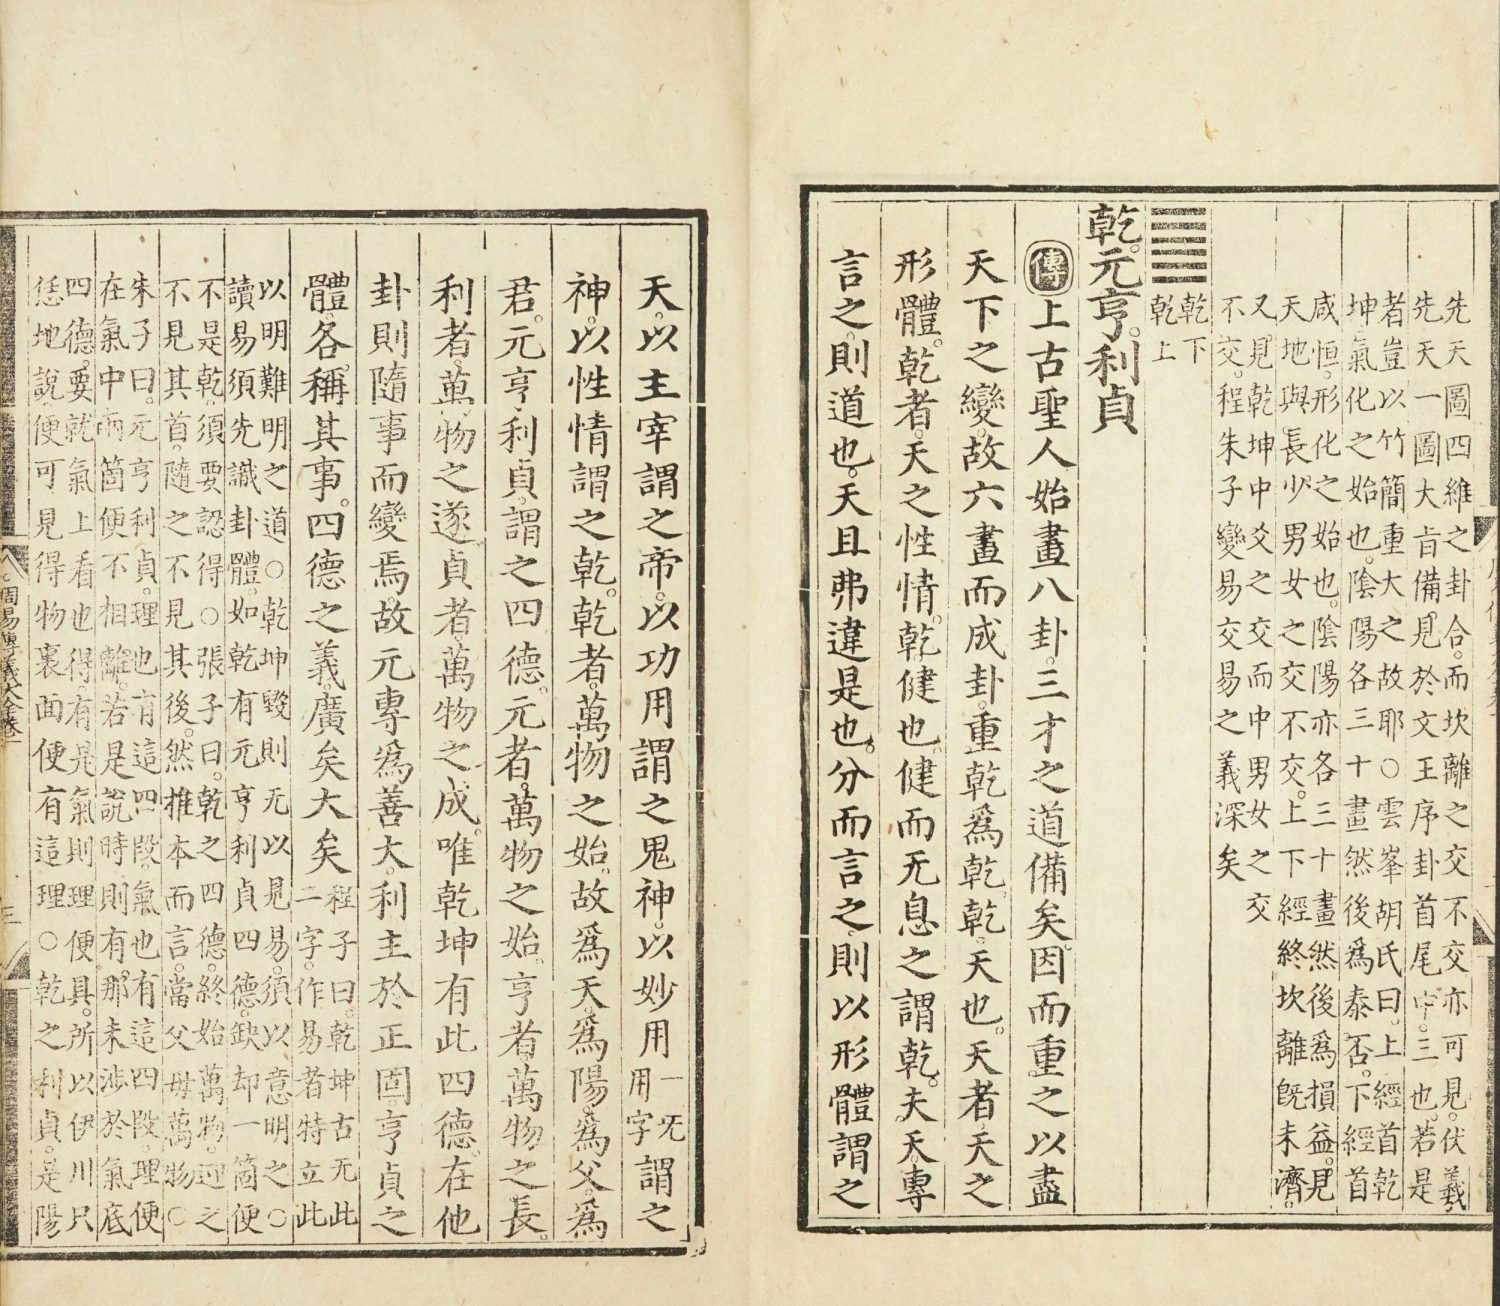 先天圖四維之卦合而坎離之交不交亦可見伏羲
先天一圖大旨備見於文王序卦首尾中三也若是
者豈以竹簡重大之故耶○雲峯胡氏曰上經首乾
坤氣化之始也陰陽各三十畫然後爲泰否下經首
咸恒形化之始也陰陽亦各三十畫然後爲損益見
天地與長少男女之交不交上下經終坎離旣未濟
又見乾坤中爻之交而中男女之交
不交程朱子變易交易之義深矣
乾下
乾上
乾元亨利貞
傳上古聖人始畫八卦三才之道備矣因而重之以盡
天下之變故六畫而成卦重乾爲乾乾天也天者天之
形體乾者天之性情乾健也健而无息之謂乾夫天專
言之則道也天且弗違是也分而言之則以形體謂之
天以主宰謂之帝以功用謂之鬼神以妙用一无用字謂之
神以性情謂之乾乾者萬物之始故爲天爲陽爲父爲
君元亨利貞謂之四德元者萬物之始亨者萬物之長
利者萬物之遂貞者萬物之成唯乾坤有此四德在他
卦則隨事而變焉故元專爲善大利主於正固亨貞之
體各稱其事四德之義廣矣大矣
程子曰乾坤古无此
二字作易者特立此
以明難明之道○乾坤毀則无以見易須以意明之○
讀易須先識卦體如乾有元亨利貞四德缺却一箇便
不是乾須要認得○張子曰乾之四德終始萬物迎之
不見其首隨之不見其後然推本而言當父母萬物○
朱子曰元亨利貞理也有這四段氣也有這四段理便
在氣中兩箇便不相離若是說時則有那未涉於氣底
四德要就氣上看也得有是氣則理便具所以伊川只
恁地說便可見得物裏面便有這理○乾之利貞是陽
周易傳義大全卷一
三